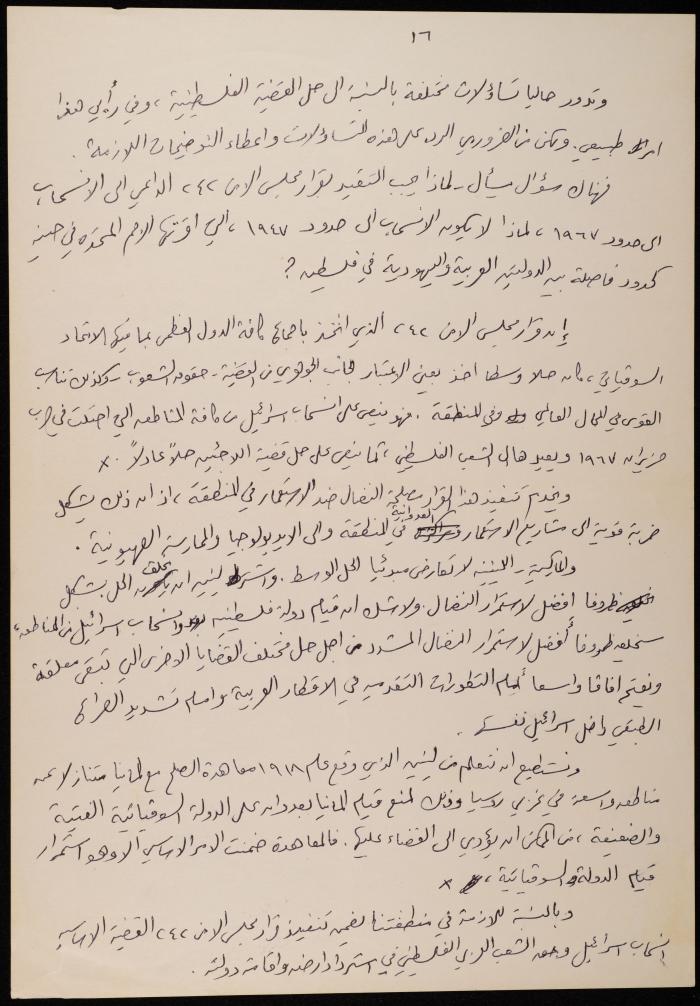 ١٦
وتدور حاليا تساؤلات مختلفة بالنسبة الى حل القضية الفلسطينية ، وفي رأيي هذا
امر طبيعي . ولكن من الضروري الرد على هذه التساؤلات واعطاء التوضيحات اللازمة .
فهناك سؤال يسأل - لماذا يجب التقيد بقرار مجلس الامن ٢٤٢ الداعي الى الانسحاب
الى حدود ١٩٦٧ ، لماذا لا يكون الانسحاب الى حدود ١٩٤٧ ، التي اقرتها الامم المتحدة في حينه
كحدود فاصلة بين الدولتين العربية واليهودية في فلسطين ؟
إن قرار مجلس الامن ٢٤٢ الذي اتخذ باجماع كافة الدول العظمى بما فيها الاتحاد
السوڤياتي ، كان حلا وسطا اخذ بعين الاعتبار الجانب الجوهري من القضية - حقوق الشعوب - وكذلك تناسب
القوى في المجال العالمي وفي المنطقة . فهو ينص على انسحاب اسرائيل من كافة المناطق التي احتلت في حرب
حزيران ١٩٦٧ ويعيدها الى الشعب الفلسطيني ، كما ينص على حل قضية اللاجئين حلاً عادلاً .
ويخدم تنفيذ هذا القرار مصلحة النضال ضد الاستعمار في المنطقة ، اذ ان ذلك يشكل
ضربة قوية الى مشاريع الاستعمار العدوانية في المنطقة والى الايديولوجيا والممارسة الصهيونية .
والماركسية - اللينينية لا تعارض مبدئيا الحل الوسط . واشترط لينين ان يخلق الحل بشكل
ظروفا افضل لاستمرار النضال . ولا شك ان قيام دولة فلسطينية وانسحاب اسرائيل من المناطق ،
سيخلق ظروفا أفضل لاستمرار النضال المشدد من اجل حل مختلف القضايا الاخرى التي تبقى معلقة
ويفتح افاقا واسعا أمام التطورات التقدمية في الاقطار العربية وامام تشديد الصراع
الطبقي داخل اسرائيل نفسها .
ونستطيع ان نتعلم من لينين الذي وقع عام ١٩١٨ معاهدة الصلح مع المانيا متنازلا عن
مناطق واسعة في غربي روسيا وذلك لمنع قيام المانيا بعدوان على الدولة السوڤياتية الفتية
والضعيفة ، من الممكن ان يؤدي الى القضاء عليها . فالمعاهدة ضمنت الامر الاساسي الا وهو استمرار
قيام الدولة السوڤياتية ،
وبالنسبة للازمة في منطقتنا يضمن تنفيذ قرار مجلس الامن ٢٤٢ القضية الاساسية
انسحاب اسرائيل وحق الشعب العربي الفلسطيني في استرداد ارضه واقامة دولته .